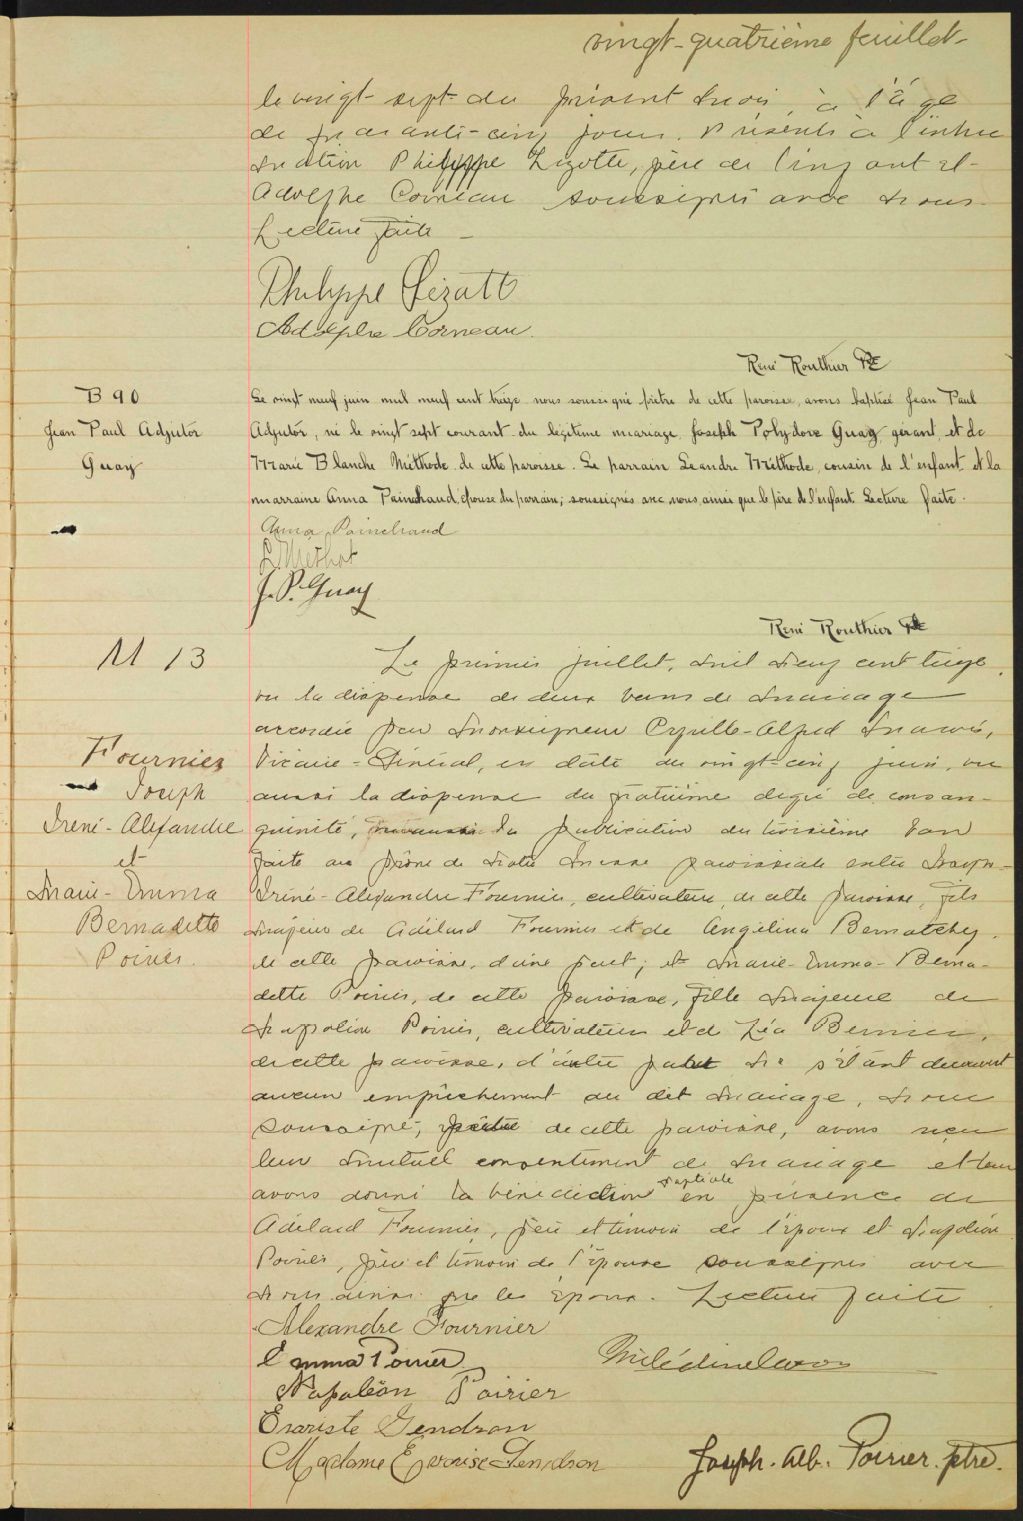 vingt-quatrième feuillet
le vingt-sept du présent mois, à l'âge
de quarante-cinq jours. Présents à l'inhu
mation Philippe Lizotte, père de l'enfant et
Adolphe Corneau soussignés avec nous.
Lecture faite
Philippe Lizotte
Adolphe Corneau.
René Routhier Ptre
B 90
Jean Paul Adjutor
Guay
Le vingt neuf juin mil neuf cent treize nous soussigné prêtre de cette paroisse, avons baptisé Jean Paul
Adjutor, né le vingt sept courant du légitime mariage Joseph Polydore Guay gérant, et de
Marie Blanche Méthode de cette paroisse. Le parrain Leandre Méthode, cousin de l'enfant et la
marraine Anna Painchaud, épouse du parrain; soussignés avec nous, ainsi que le père de l'enfant. Lecture faite.
Anna Painchaud
L Methot
J. P. Guay
René Routhier Ptre
M 13
Fournier
Joseph
Iréné-Alexandre
et
Marie-Emma
Bernadette
Poirier.
Le premier juillet, mil neuf cent treize,
vu la dispense de deux bans de mariage
accordée par Monseigneur Cyrille-Alfred Marois,
Vicaire-Général, en date du vingt-cinq juin, vu
aussi la dispense du quatrième degré de consan-
guinité, la publication du troisième ban
faite au prône de notre messe paroissiale entre Joseph-
Iréné-Alexandre Fournier, cultivateur, de cette paroisse, fils
majeur de Adélard Fournier et de Angélina Bernatchez,
de cette paroisse, d'une part; et Marie-Emma-Berna-
dette Poirier, de cette paroisse, fille majeure de
Napoléon Poirier, cultivateur et de Léa Bernier,
de cette paroisse, d'autre part ne s'étant découvert
aucun empêchement au dit mariage, nous
soussigné, prêtre de cette paroisse, avons reçu
leur mutuel consentement de mariage et leur
avons donné la bénédiction nuptiale en présence de
Adélard Fournier, père et témoin de l'époux et Napoléon
Poirier, père et témoin de l'épouse soussignés avec
nous ainsi que les époux. Lecture faite.
Alexandre Fournier
Emma Poirier
Napoléon Poirier
Evariste Gendron
Madame Evariste Gendron
Joseph. Alb. Poirier. ptre.